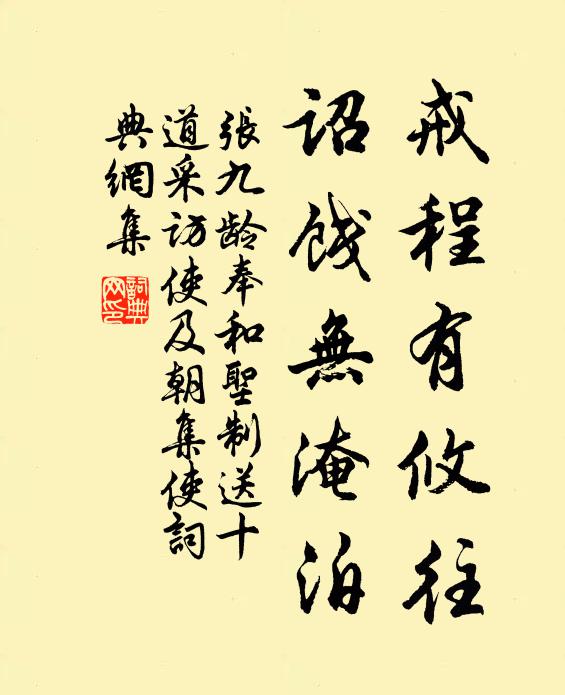 戒程有攸往
詔餞無淹泊
張九龄奉和聖制送十
道采访使及朝集使詞
典網集
詞典網印